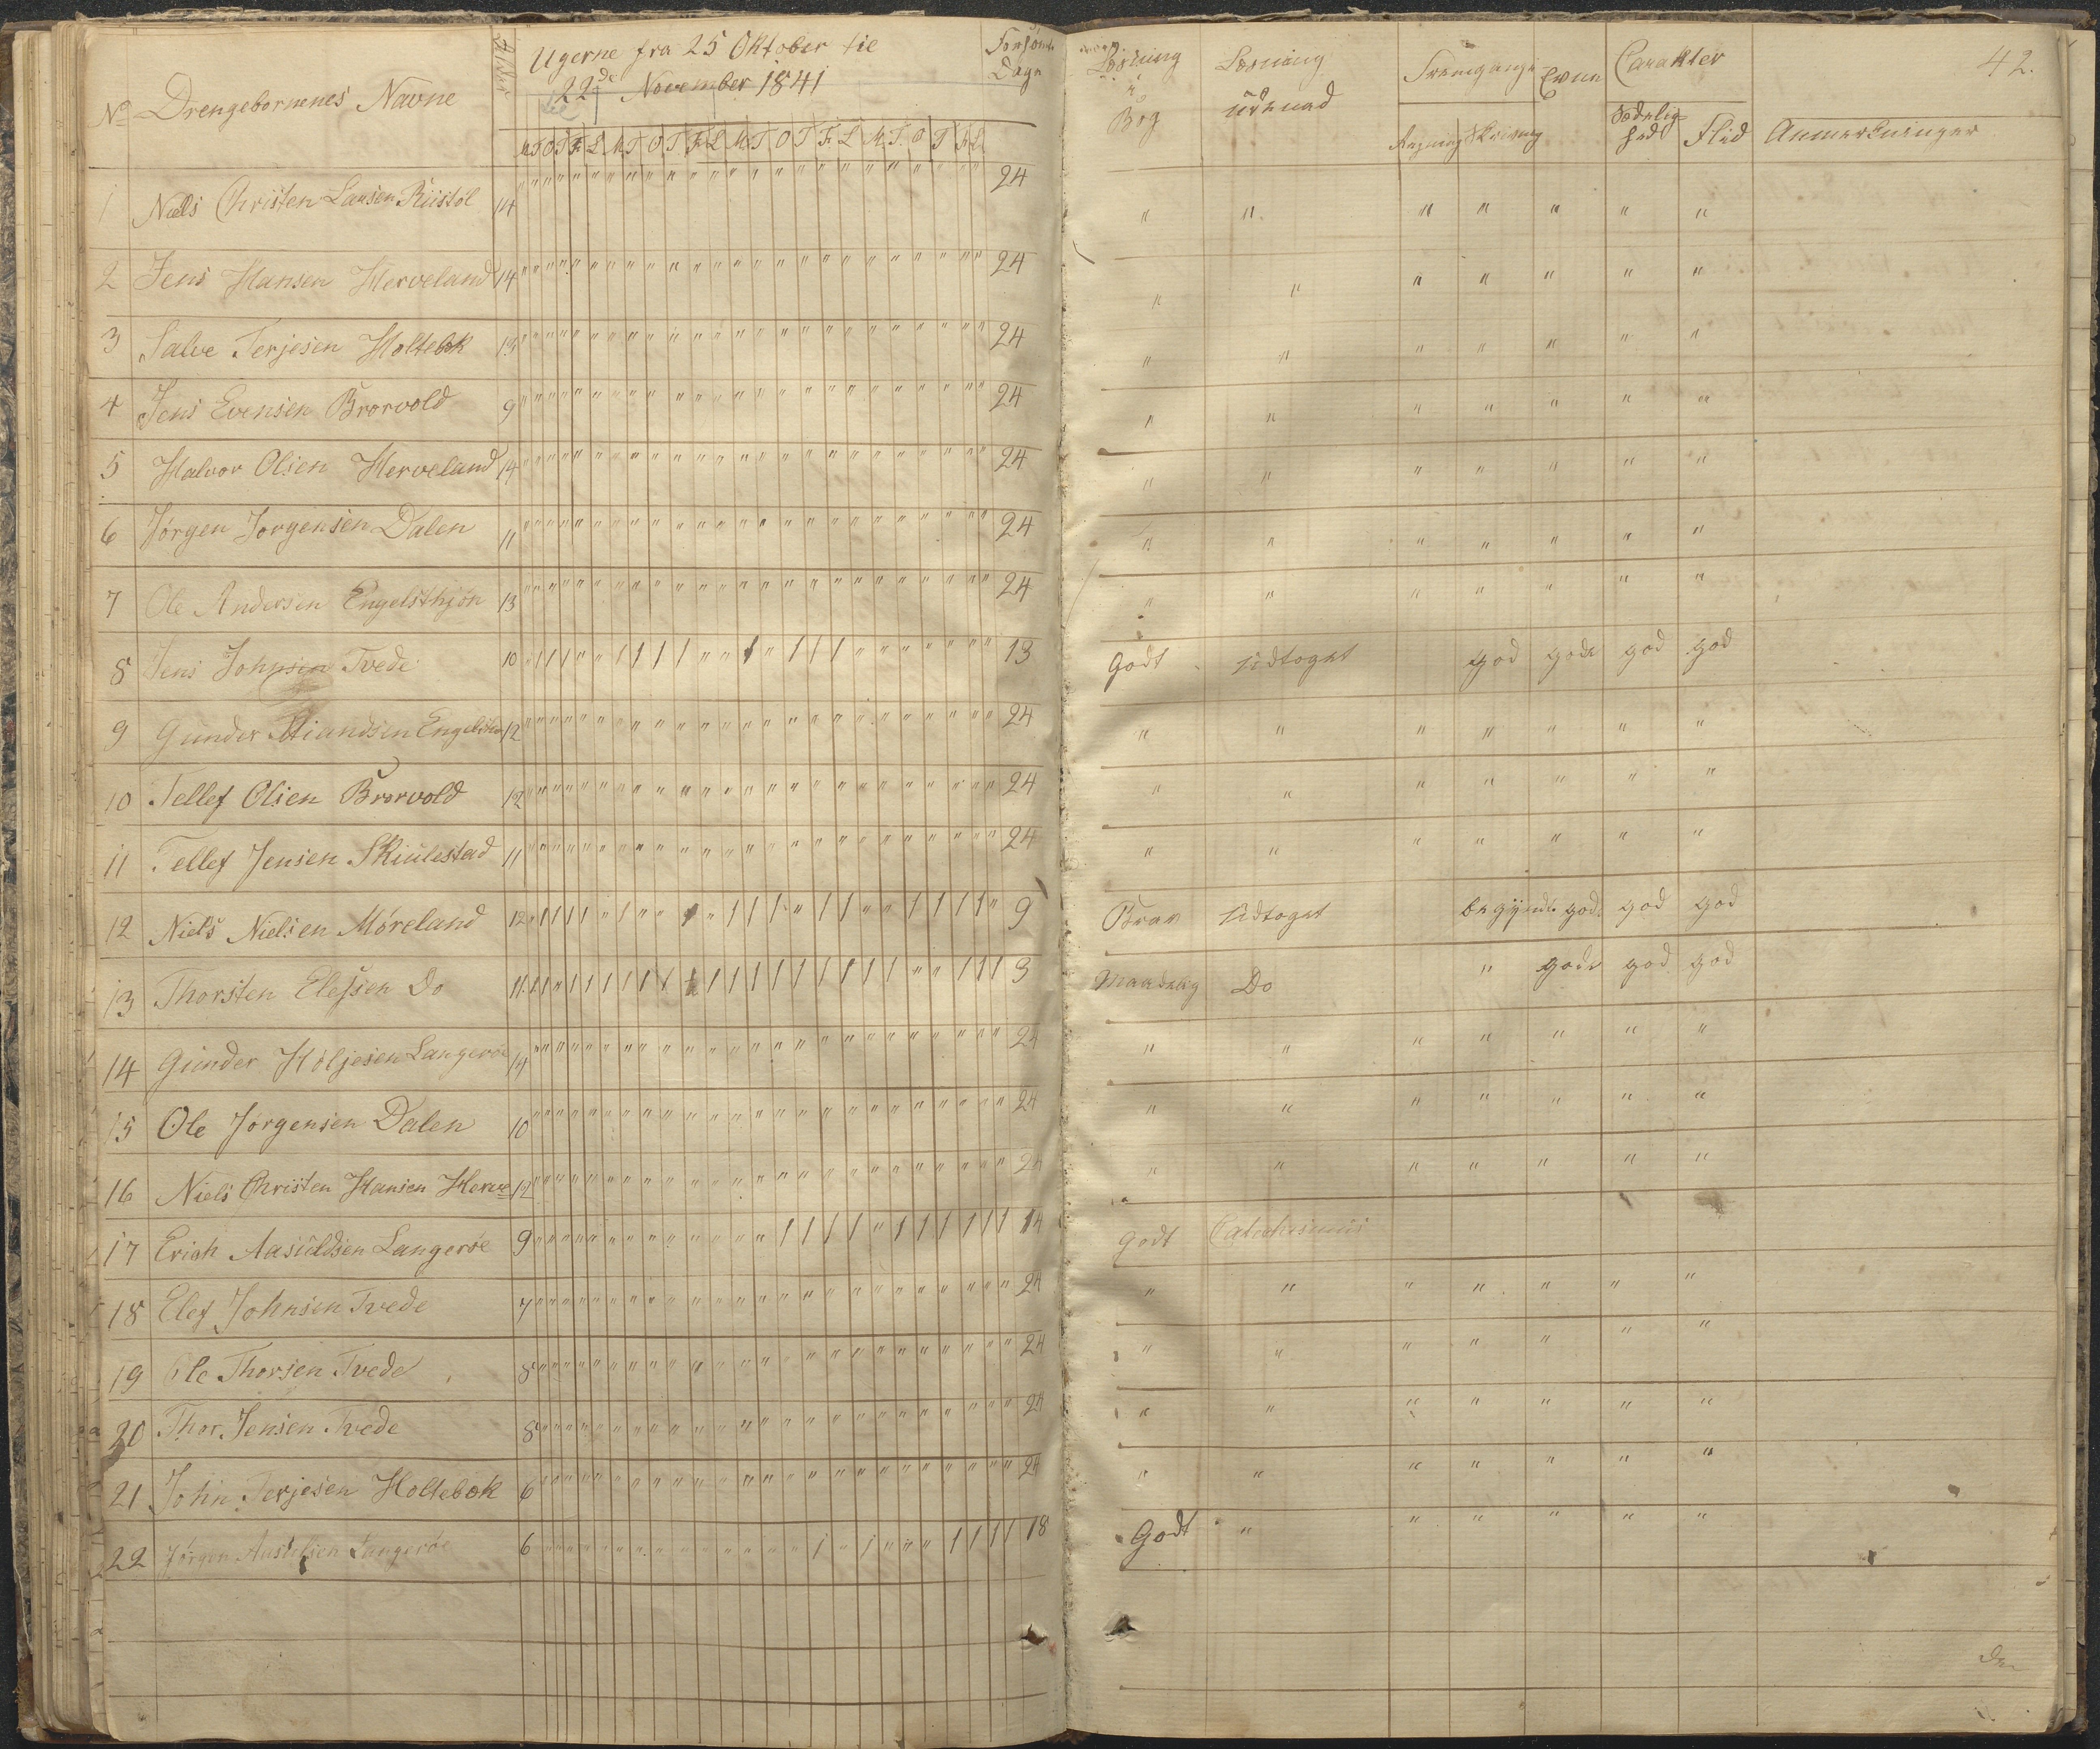 No Drengebornenes Navne Alder Ugerne fra 25 Oktober til Forsømte Dage
22de November 1841
M T O T F L M T O T F L M T O T F L M T O T F L
1 Niels Christen Larsen Riistøl 14 24
2 Jens Hansen Herveland 14 24
3 Salve Terjesen Holtebek 13 24
4 Jens Evensen Brorvold 9 24
5 Halvor Olsen Herveland 14 24
6 Jörgen Jorgensen Dalen 11 24
7 Ole Andersen Engelsthjön 13 24
8 Jens Johnsen Tvede 10 13
9 Gunder 12 24
10 Tellef Olsen Brorvold 12 24
11 Tellef Jensen Skiulestad 11 24
12 Niels Nielsen Möreland 12 9
13 Thorsten Elefsen Do 11 3
14 Gunder Höljesen Langerøe 14 24
15 Ole Jörgensen Dalen 10 24
16 Niels Christen Hansen Herve 12 24
17 Erich Aasuldsen Langerøe 9 14
18 Elef Johnsen Tvede 7 24
19 Ole Thorsen Tvede 8 24
20 Thor Jensen Tvede 8 24
21 John Terjesen Holtebek 6 24
22 Jörgen Langerøe 6 18
42.
Læsning i Bog Læsning udenad Fremgang i Evne Carakter
Regning Skrivning Sædelighed Flid Anmerkninger
" " " " " " "
" " " " " " "
" " " " " " "
" " " " " " "
" " " " " " "
" " " " " " "
" " " " " " "
Godt Udtoget god gode god god
" " " " " " "
" " " " " " "
" " " " " " "
Brav Udtoget begynde gode god god
Maadelig Do " gode god god
" " " " " " "
" " " " " " "
" " " " " " "
Godt Catechismus
" " " " " " "
" " " " " " "
" " " " " " "
" " " " " " "
Godt " " " " " "